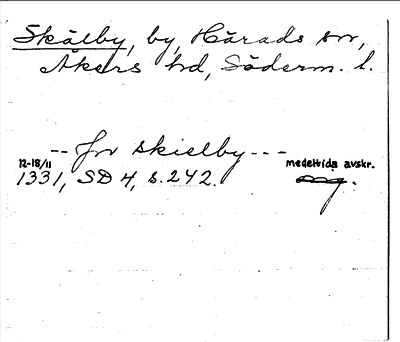 Skälby, by, Härads sn,
Åkers hd, Söderm. l.
-- fr skielby ---
12-18/11 medeltida avskr.
1331, SD 4, s. 242. orig.